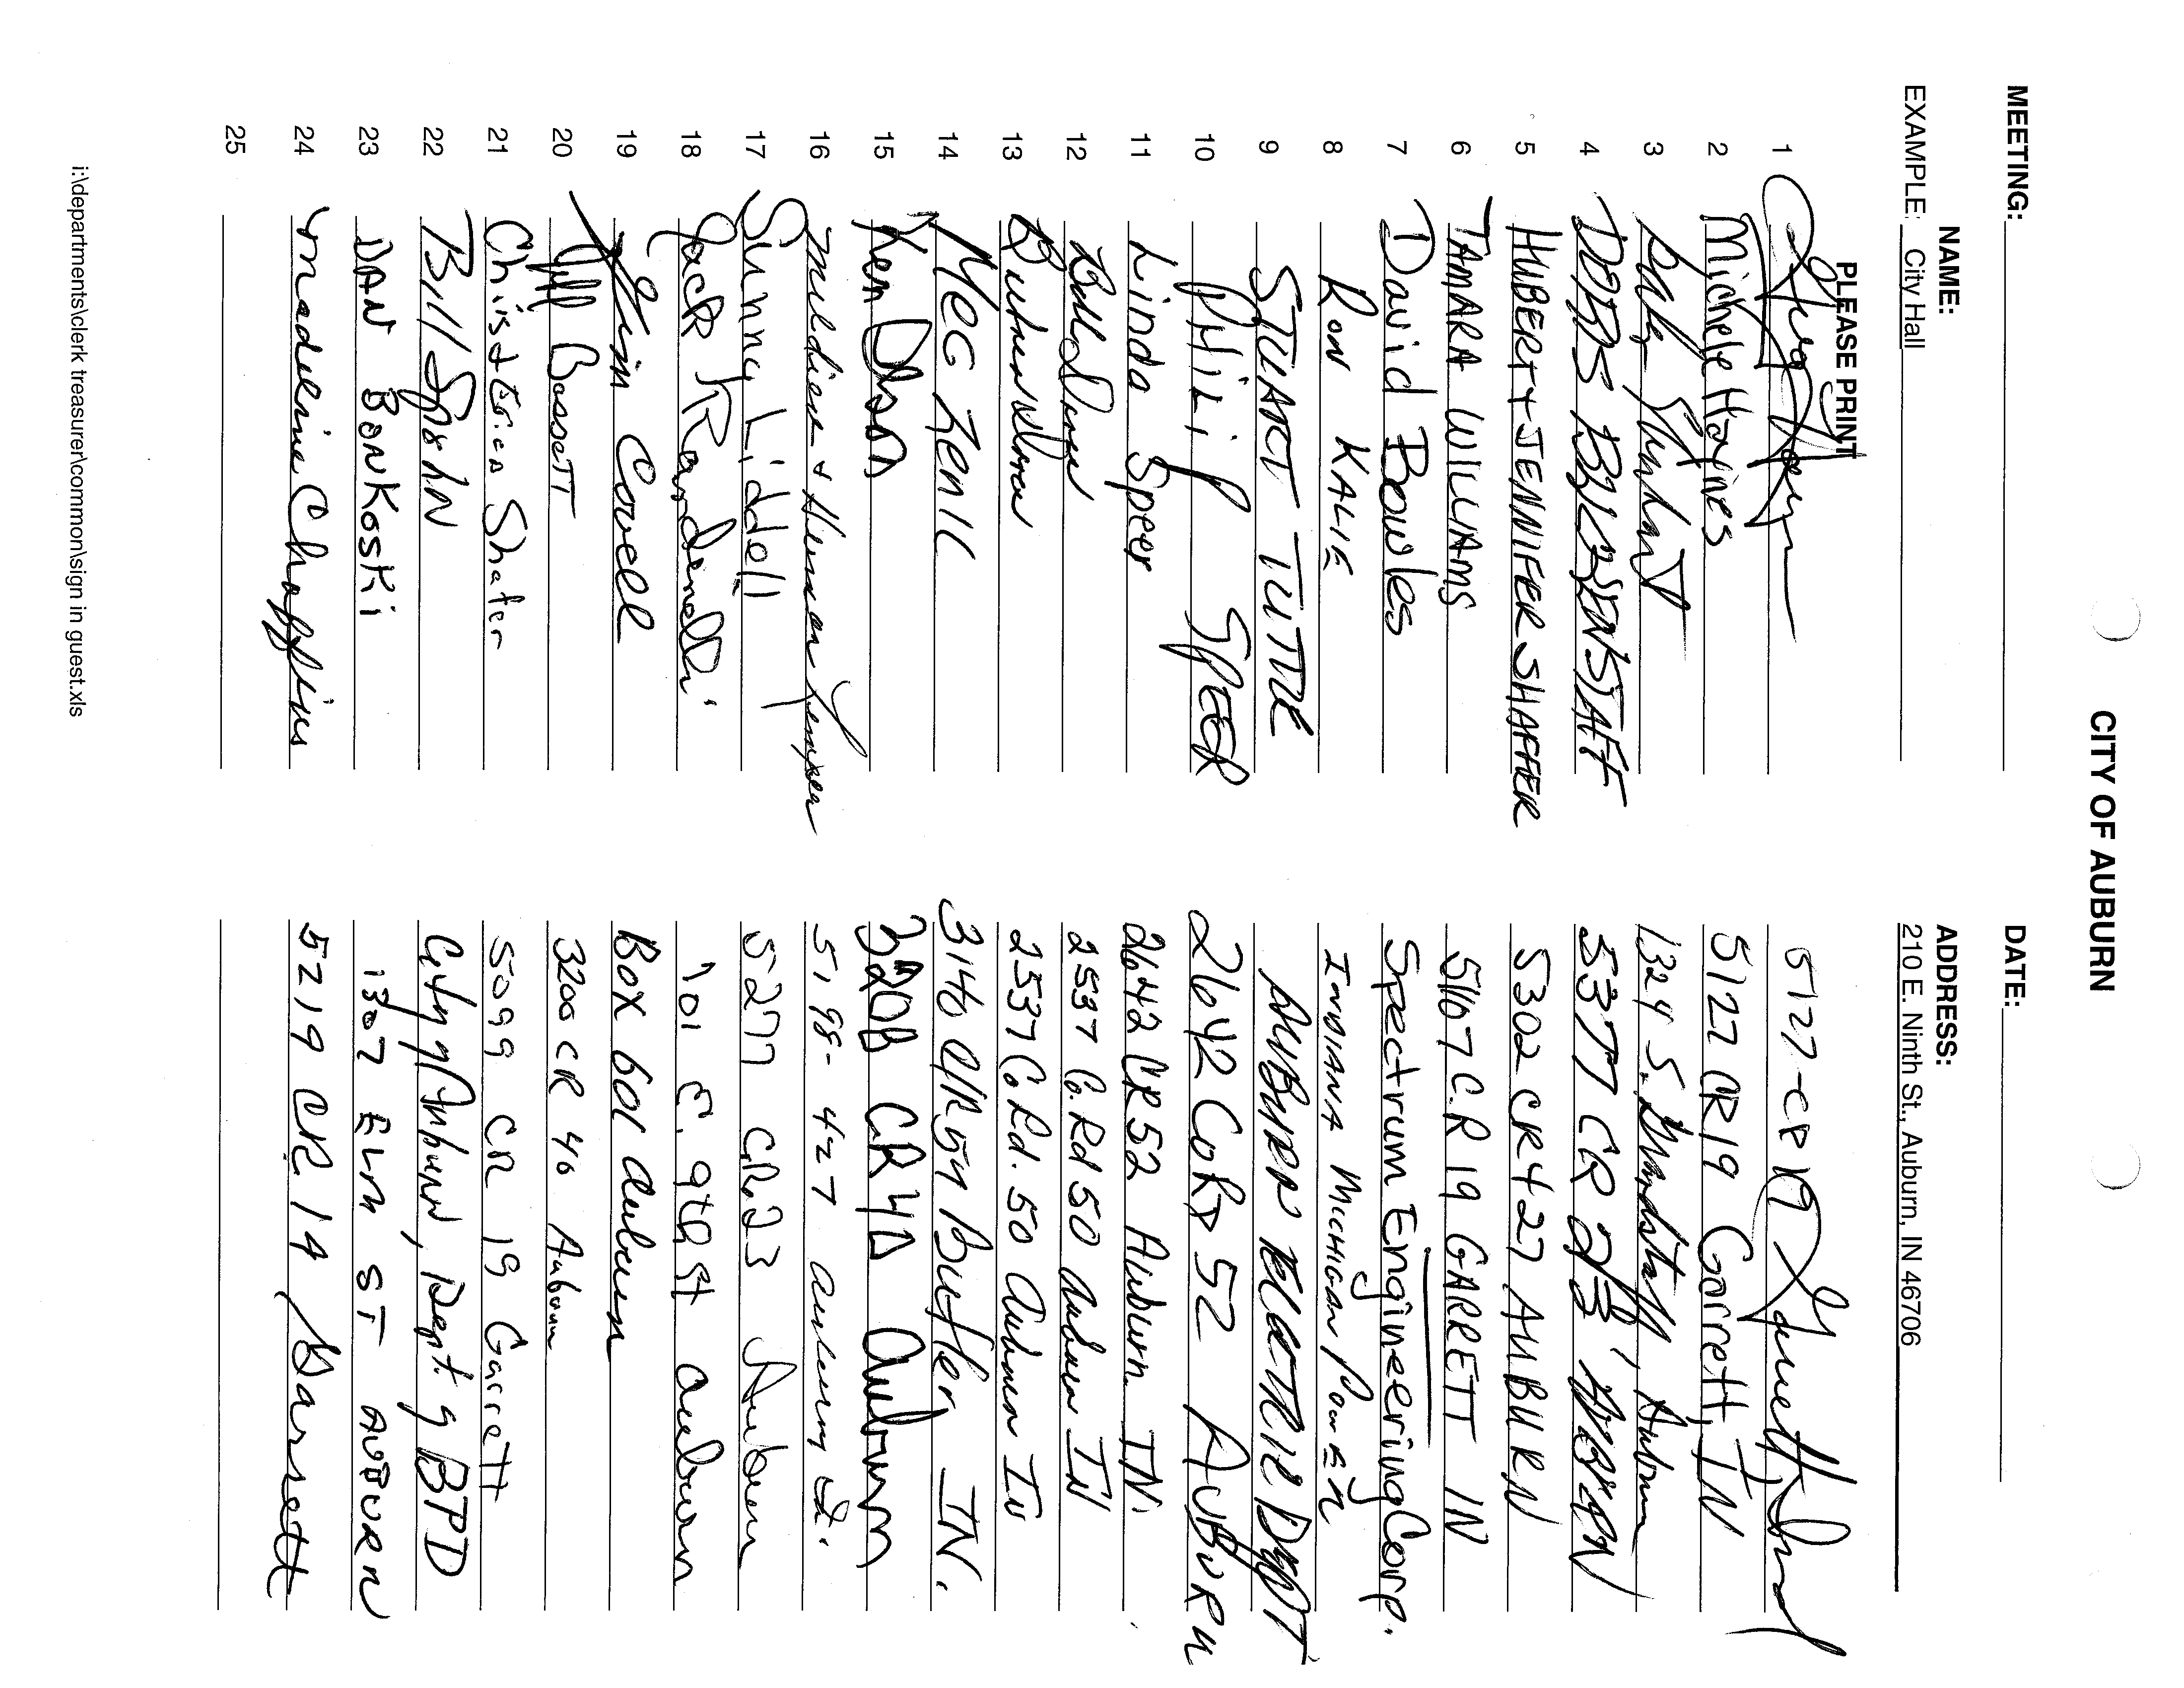 CITY OF AUBURN
MEETING: DATE:
NAME: ADDRESS:
EXAMPLE: City Hall 210 E. Ninth St., Auburn, IN 46706
PLEASE PRINT
1 5127-CR 19
2 Michele Haines 5127 CR 19 Garrett, IN
3 1324 S. Grandstaff, Auburn
4 5377 CR 23 AUBURN
5 HUBERT + JENNIFER SHAFFER 5302 CR 427 AUBURN
6 TAMARA WILLIAMS 5167 C.R 19 GARRETT IN
7 David Bowles Spectrum Engineering Corp.
8 RON KALIE INDIANA MICHIGAN POWER
9 STUART TUTTLE AUBURN ELECTRIC DEPT
10 PHiLiP SPEER 2642 CoRD 52 AUBURN
11 Linda Speer 2642 CR 52 Auburn IN.
12 2537 Co. Rd 50 Auburn IN
13 2537 Co. Rd. 50 Auburn IN
14 3146 CR 54 Butler IN.
15 Ken CR 40 Auburn
16 5198- 427
17 Liddell 5277 CR 23 Auburn
18 Jack Randinelli 101 E. 9th St Auburn
19 Jim Covell Box 601 Auburn
20 Jeff Bassett 3200 CR 40 Auburn
21 Shafer 5099 CR 19 Garrett
22 Bill Spohn City of Auburn, Dept. of BPD
23 DAN BONKOSKi 1307 ELM ST AUBURN
24 Madeline Chaffins 5219 CR. 19 Garrett
25
i:\departments\clerk treasurer\common\sign in guest.xls